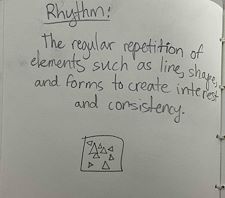 Rhythm:
The regular repetition of
elements such as line, shape,
and forms to create interest
and consistency.